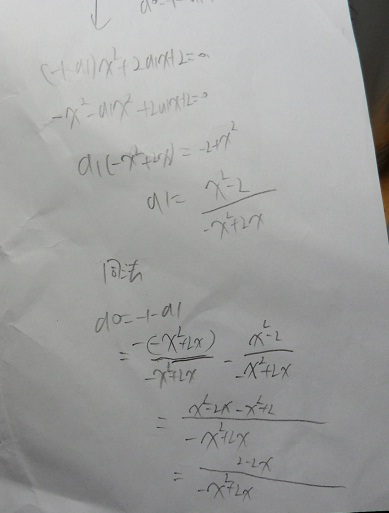 (-1-a1)x²+2a1x+2=0
-x²-a1x²+2a1x+2=0
a1(-x²+2x)=-2+x²
a1=\frac{x²-2}{-x²+2x}
同法
a0=-1-a1
=\frac{-(-x²+2x)}{-x²+2x}-\frac{x²-2}{-x²+2x}
=\frac{x²-2x-x²+2}{-x²+2x}
=\frac{2-2x}{-x²+2x}